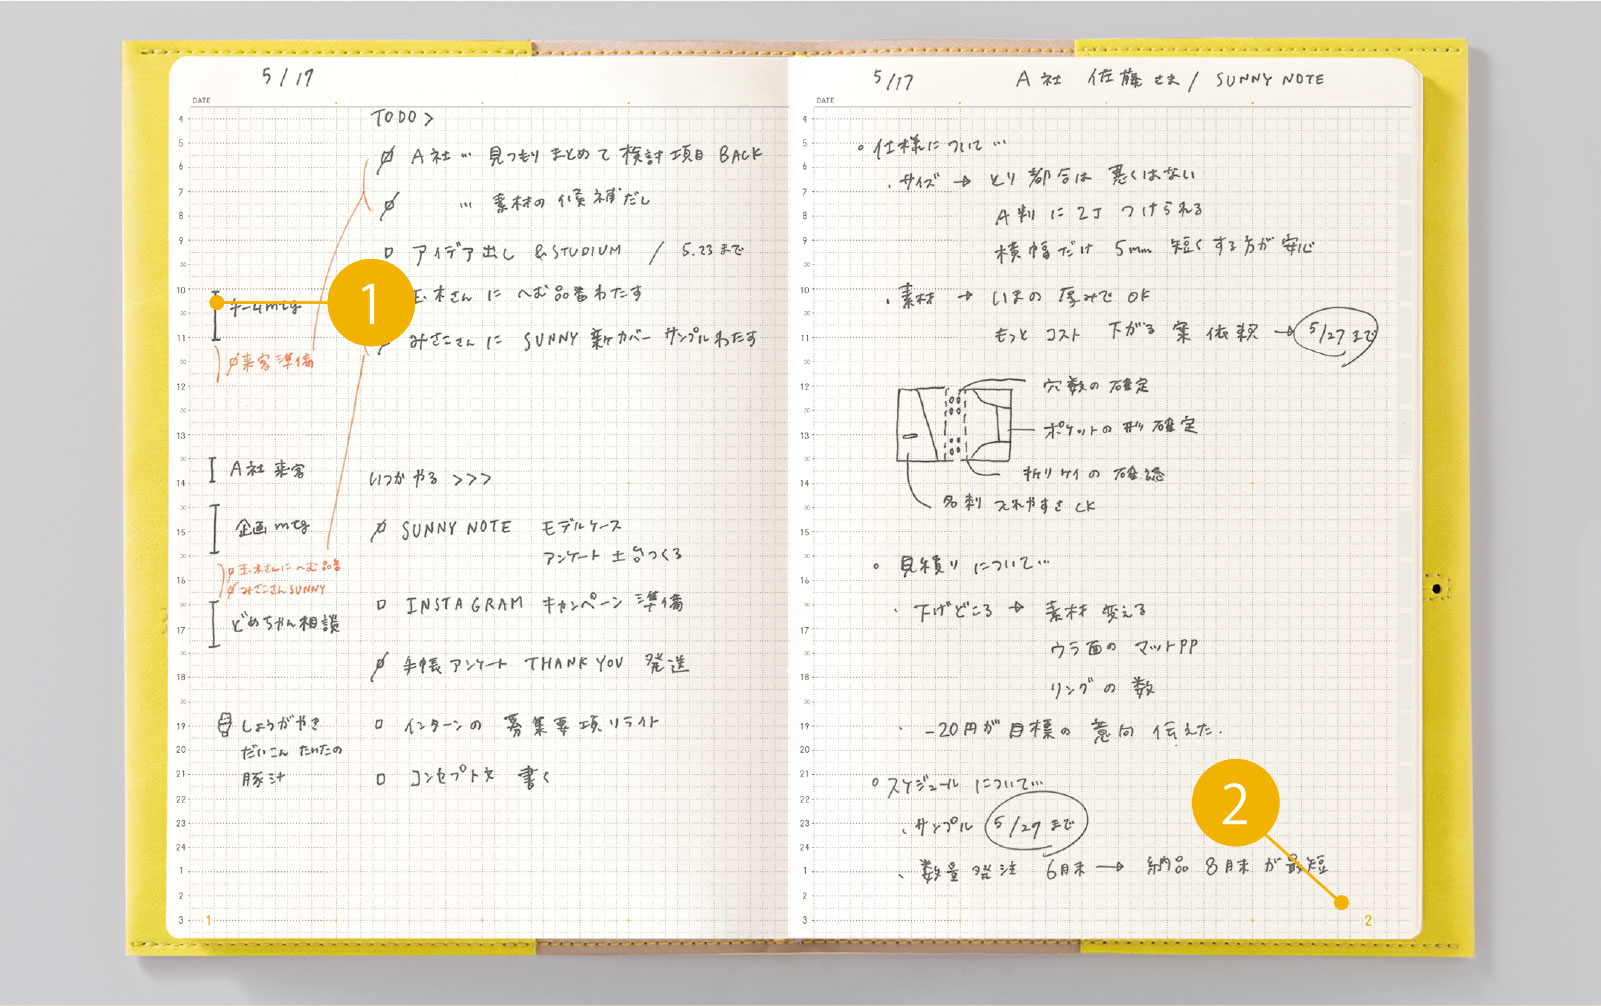 5/17
DATE
TODO >
A社 … 見つもりまとめて検討項目 BACK
… 素材の候補だし
アイデア出し &STUDIUM / 5.23まで
玉木さんに へむ品番わたす
みさこさんに SUNNY 新カバー サンプルわたす
4
5
6
7
8
9
10
11
12
13
14
15
16
17
18
19
20
21
22
23
24
1
2
3
チームmtg
来客準備
A社来客
企画mtg
玉木さんに へむ品番
みさこさんSUNNY
どめちゃん相談
しょうがやき
だいこんたいたの
豚汁
いつかやる >>>
SUNNY NOTE モデルケース
アンケート土台つくる
INSTAGRAM キャンペーン準備
手帳アンケート THANK YOU 発送
インターンの募集要項リライト
コンセプト文 書く
1
1
5/17 A社 佐藤さま / SUNNY NOTE
DATE
4
5
6
7
8
9
10
11
12
13
14
15
16
17
18
19
20
21
22
23
24
1
2
3
仕様について…
・サイズ → とり都合は悪くはない
A判に2丁つけられる
横幅だけ 5mm 短くする方が安心
・素材 → いまの厚みでOK
もっとコスト下がる案依頼 → 5/27まで
穴数の確定
ポケットの形確定
折りケイの確認
名刺入れやすさCK
見積りについて…
・下げどころ → 素材変える
ウラ面のマットPP
リングの数
・-20円が目標の意向伝えた.
スケジュールについて…
・サンプル 5/27まで
・数量発注 6月末 → 納品 8月末が最短
2
2